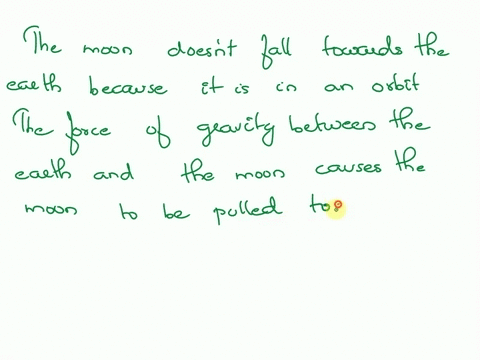 The moon doesn't fall towards the
earth because it is in an orbit
The force of gravity between the
earth and the moon causes the
moon to be pulled to